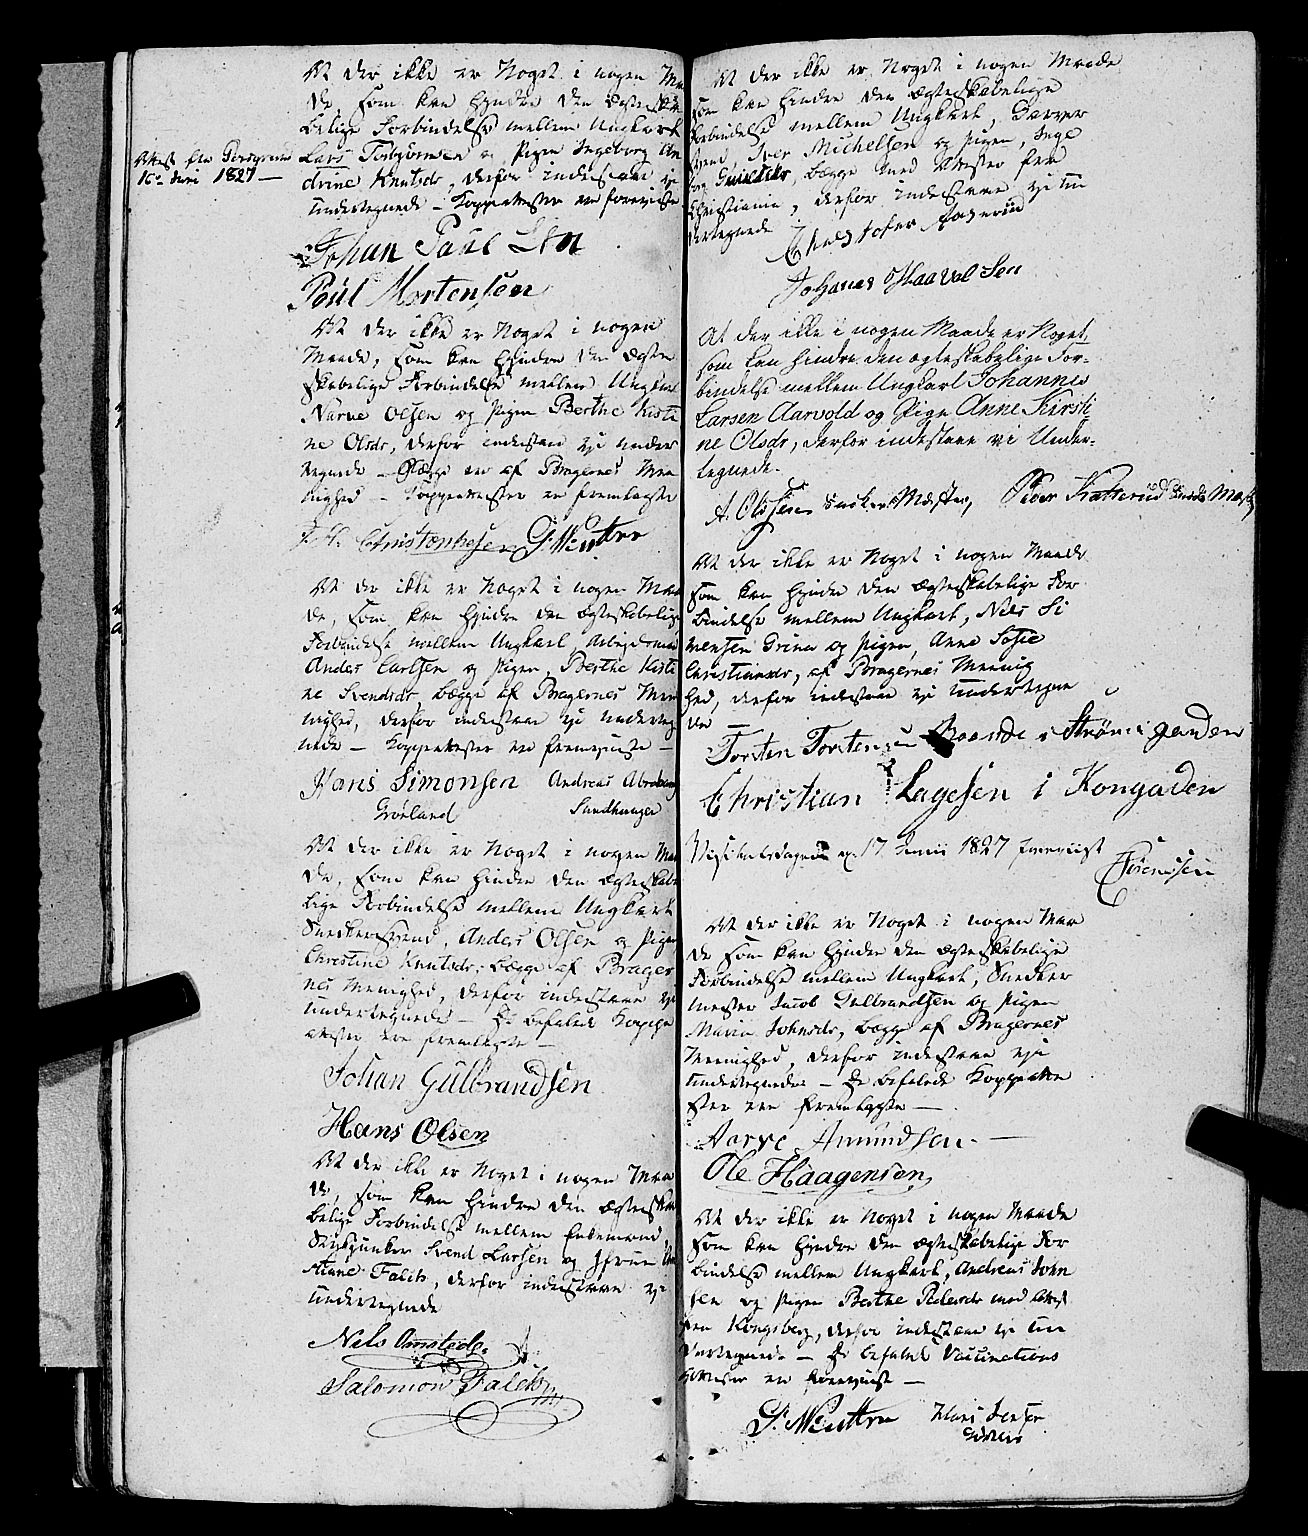 At der ikke er Noget i nogen Maa
de, som kan hindre den Ægteska
belige Forbindelse mellem Ungkarl
Lars Torbjørnsen og Pigen Ingeborg An
drine Knutsdr, derfor indestaae vi
Undertegnede – Koppeattester ere foreviste
Attest fra Porsgrund
16de Juni 1827 —
Johan Paul
Poul Mortensen
At der ikke er Noget i nogen
Maade, som kan hindre den Ægte
skabelige Forbindelse mellem Ungkarl
Narve Olsen og Pigen Berthe Kisti
ne Olsdr, derfor indestaae vi Under
tegnede – Begge ere af Bragernes Me
nighed – Koppeattester ere fremlagte
Christensen P. Winther
At der ikke er Noget i nogen Maa
de, som kan hindre den Ægteskabelige
Forbindelse mellem Ungkarl, Arbeidsmand
Anders Carlsen og Pigen, Berthe Kisti
ne Svendsdr, begge af Bragernes Me
nighed, derfor indestaae vi underteg
nede – Koppeattester ere foreviiste –
Hans Simonsen Andreas Abraham
Grønland Sandhaugen
At der ikke er Noget i nogen Maa
de, som kan hindre den Ægteskabe
lige Forbindelse mellem Ungkarl
Snedkersvend, Anders Olsen og Pigen
Christine Knutsdr, begge af Brager
nes Menighed, derfor indestaae vi
Undertegnede – De befalede Koppe
attester ere fremlagte –
Johan Gulbrandsen
Hans Olsen
At der ikke er Noget i nogen Maa
de, som kan hindre den Ægteska
belige Forbindelse mellem Enkemand,
Svend Larsen og Jfrue
Falch, derfor indestaae vi
Undertegnede
Niels Omsted
Salomon Falch
At der ikke er Noget i nogen Maade
som kan hindre den Ægteskabelige
Forbindelse mellem Ungkarl, Garver
svend, Iver Michelsen og Pigen, Inge
borg, begge med Attester fra
Christiania, derfor indestaae vi Un
dertegnede
Christofer
Johanes Haavelsen
At der ikke i nogen Maade er Noget,
som kan hindre den ægteskabelige For-
bindelse mellem Ungkarl Johannes
Larsen Aarvold og Pige Anne Kirsti
ne Olsdr, derfor indestaae vi Under-
tegnede.
A. Olssen Snekermæster, Peder
At der ikke er Noget i nogen Maade
som kan hindre den Ægteskabelige For
bindelse mellem Ungkarl, Niels Si
mensen Grina og Pigen, Anne Sofie
Christiansdr, af Bragernes Menig
hed, derfor indestaae vi Undertegne
de –
Torsten Torstensen Boende i Strømsgaden
Christian Lagesen i Kongaden
17 Junii 1827 foreviist
Sørenssen
At der ikke er Noget i nogen Maa
de som kan hindre den Ægteskabelige
Forbindelse mellem Ungkarl, Snedker
mester Jacob Gulbrandsen og Pigen
Maria Johnsdr, begge af Bragernes
Menighed, derfor indestaae vi
Undertegnede – De befalede Koppeatte
ster ere fremlagte –
Narve Amundsen –
Ole Haagensen,
At der ikke er Noget i nogen Maade
som kan hindre den Ægteskabelige For
bindelse mellem Ungkarl, Andreas John
sen og Pigen Berthe Pedersdr med Attest
fra Kongsberg, derfor indestaae vi Un
dertegnede – De befalede Vaccinations
attester ere foreviist –
P. Winther Hans Jensen